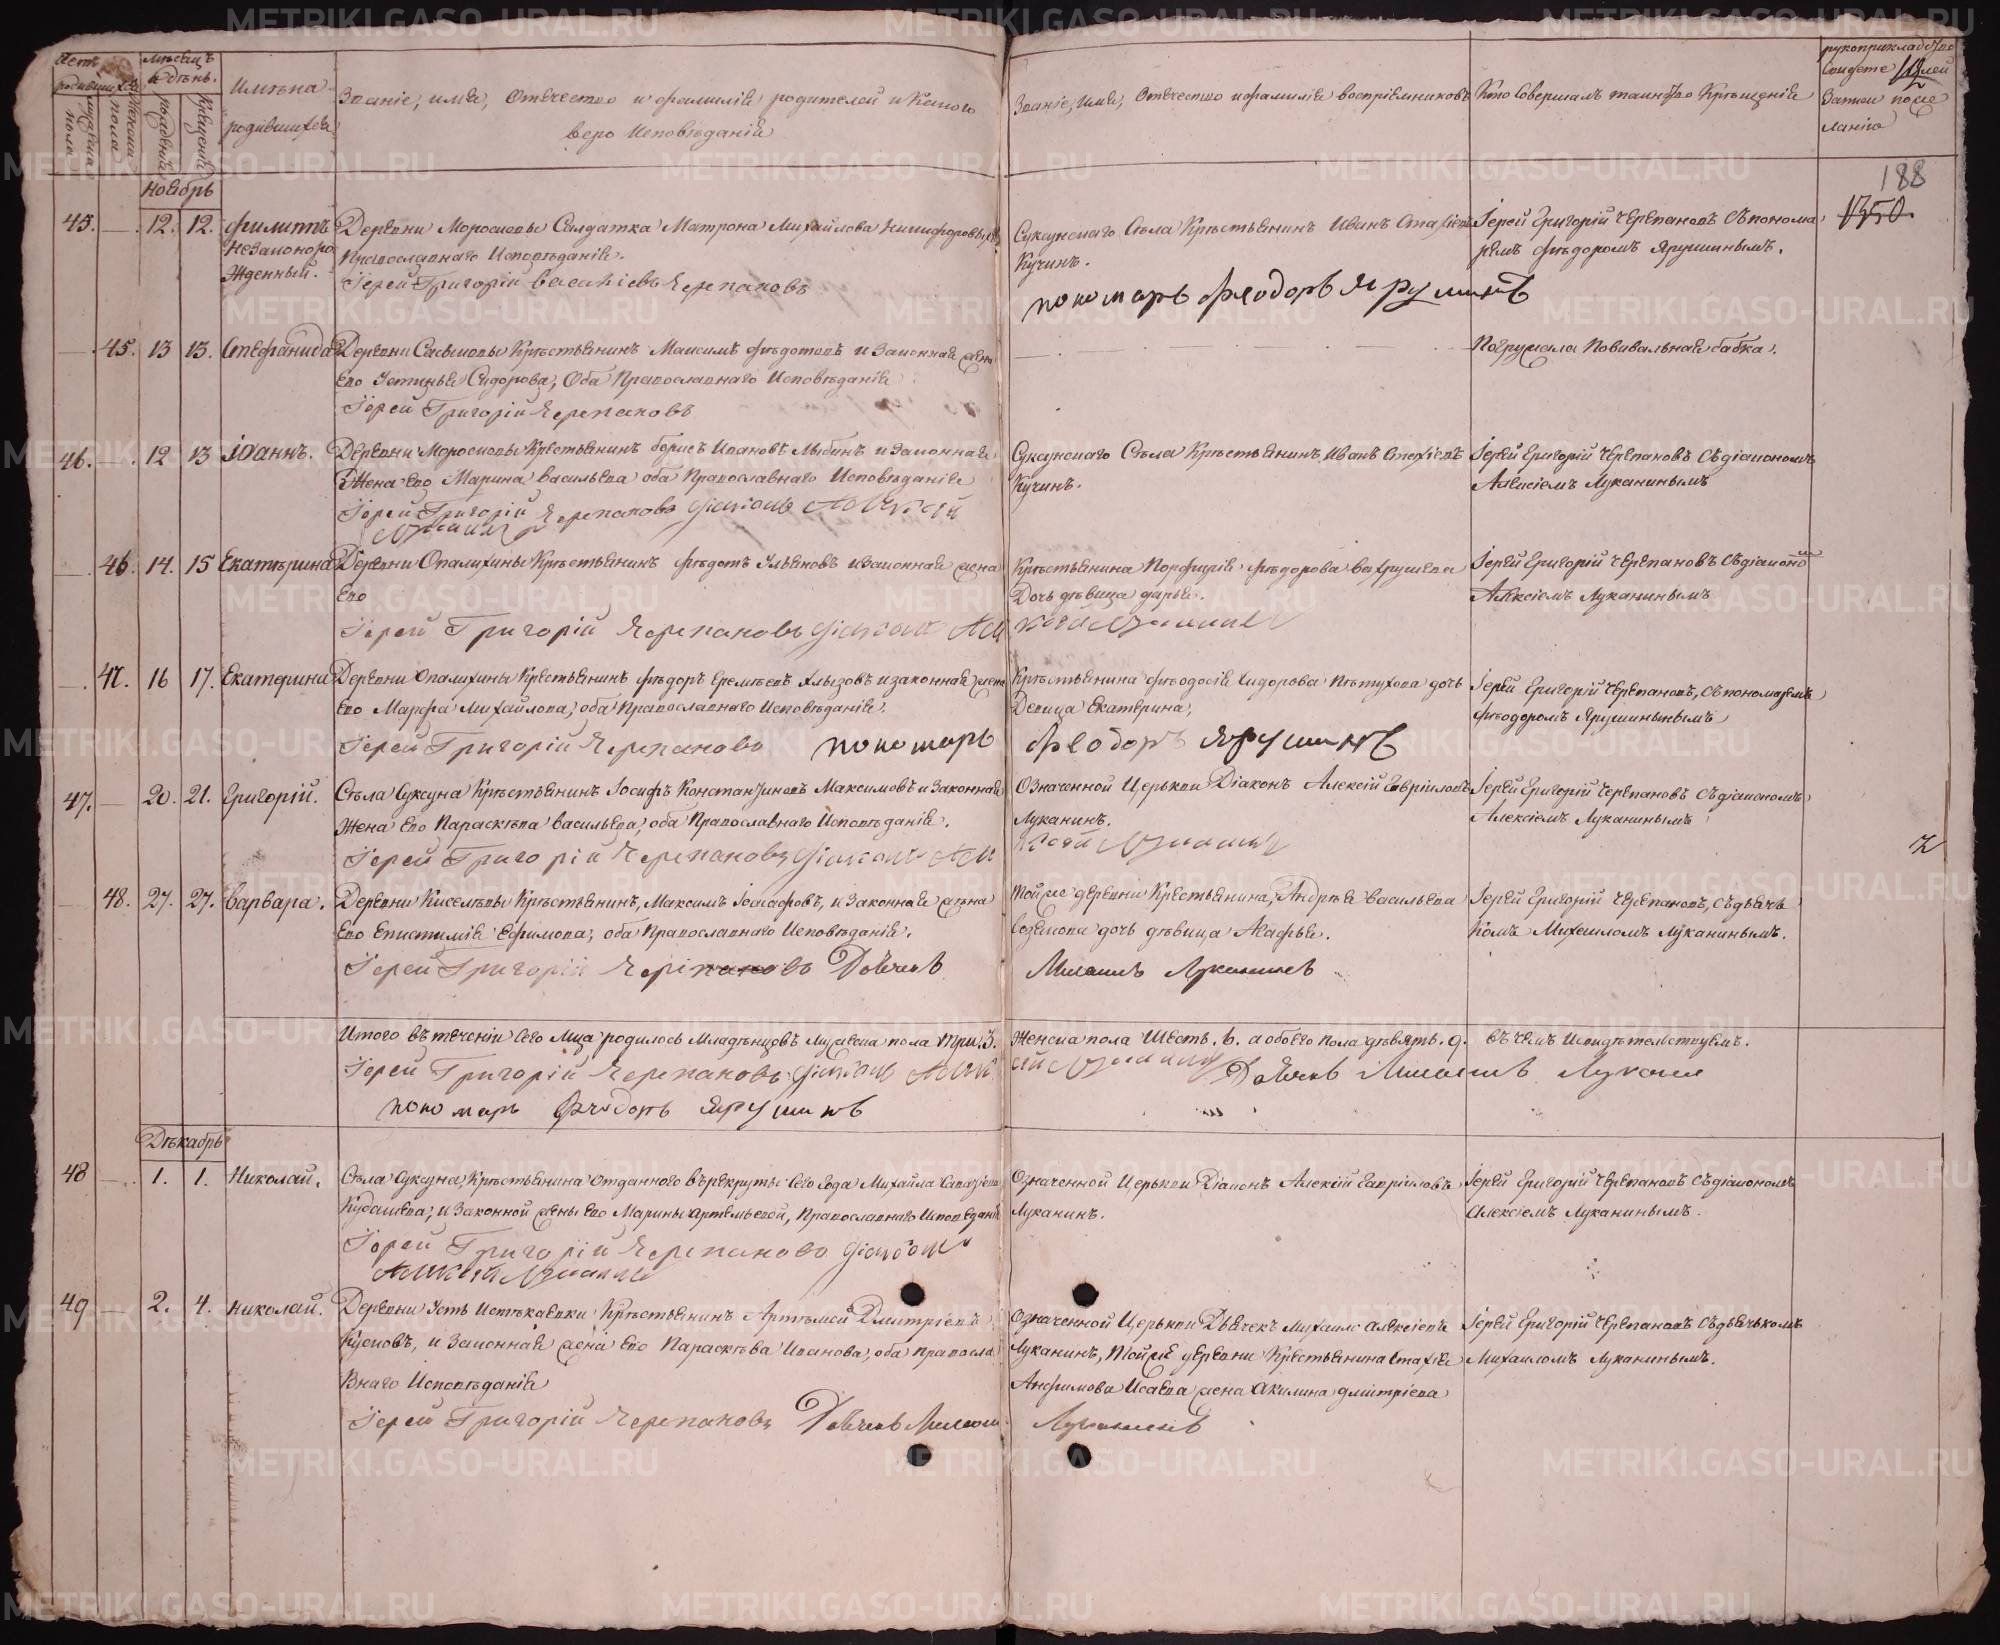 Имѣна родившихся
Званіе, имя, Отечество и фамиліе родителей и Какого
веро Исповѣданія
Званіе, Имя, Отечество и фамиліе воспріемниковъ
Кто Совершалъ таинство Крѣщенія
188
1350.
ноябрь
45. 12. 12. Филиппъ незаконорожденный.
Деревни Морозковы Салдатка Матрона Михайлова Никифорова,
Православнаго Исповѣданія.
Іерей Григорій Василіевъ Черепановъ
Суксунскаго Села Крѣстьянинъ Иванъ Стахіевъ
Кучинъ.
пономарь Феодоръ Ярушинъ
Іерей Григорій Черепановъ Съ понома
ремъ Фѣдоромъ Ярушинымъ.
45. 13 13. Стефанида
Деревни Крѣстьянинъ Максимъ Фѣдотовъ и Законная жена
Его Устинья Сидорова, Оба Православнаго Исповѣданія
Іерей Григорій Черепановъ
Погружала Повивальная бабка.
46. 12 13 Іоаннъ.
Деревни Морозковы Крестьянинъ Борисъ Ивановъ и Законная
Жена его Марина Васильева оба Православнаго Исповѣданія
Іерей Григорій Черепановъ Діаконъ Алексій
Луканинъ
Суксунскаго Села Крѣстьянинъ Иванъ Стахіевъ
Кучинъ.
Іерей Григорій Черепановъ Съ діакономъ
Алексіемъ Луканинымъ
46. 14. 15 Екатерина
Деревни Опалихины Крѣстьянинъ Фѣдотъ Ульяновъ и Законная жена
Его
Іерей Григорій Черепановъ Діаконъ Алексій Луканинъ
Крѣстьянина Порфирія Фѣдорова Вахрушева
Дочь дѣвица Дарья.
Іерей Григорій Черепановъ Съ діакономъ
Алексіемъ Луканинымъ
47. 16 17. Екатерина
Деревни Опалихины Крестьянинъ Фѣдоръ Еремѣевъ Хлызовъ и законная жена
Его Марфа Михайлова, оба Православнаго Исповѣданія.
Іерей Григорій Черепановъ пономарь Феодоръ Ярушинъ
Крѣстьянина Фѣодосія Сидорова Пѣтухова дочь
Девица Екатерина,
Іерей Григорій Черепановъ, Съ пономаремъ
Фѣодоромъ Ярушинынымъ
47. 20. 21. Григорій.
Села Суксуна Крѣстьянинъ Іосифъ Константиновъ Максимовъ и Законная
Жена Его Параскѣва Васильева, оба Православнаго Исповѣданія.
Іерей Григорій Черепановъ Діаконъ Алексій Луканинъ
Означенной Церькви Діаконъ Алексій Гавріиловъ
Луканинъ.
Іерей Григорій Черепановъ Съ діакономъ
Алексіемъ Луканинымъ
48. 27. 27. Варвара.
Деревни Киселѣвы Крѣстьянинъ, Максимъ Іоасафовъ, и Законная жѣна
Его Епистимія Ефимова, оба Православнаго Исповѣданія.
Іерей Григорій Черепановъ Дьячекъ Михаилъ Луканинъ
Той же деревни Крѣстьянина, Андрѣя Васильева
дочь дѣвица Агафья.
Іерей Григорій Черепановъ, Съ дьяч
комъ Михаиломъ Луканинымъ.
Итого въ тѣченіи Сего Мца родилось Младѣнцовъ Мужеска пола три. 3. Женска пола Шесть. 6. а обоего пола дѣвять. 9. въ чемъ
Іерей Григорій Черепановъ Діаконъ Алексій Луканинъ Дьячекъ Михаилъ Лукани
пономарь Феодоръ Ярушинъ
Дѣкабрь
48 1. 1. Николай.
Села Суксуна, Крѣстьянина отданного въ рекруты сего года Михайла
Кудашева, и Законной жены Его Марины Артемьевой, Православнаго Исповеданія
Іерей Григорій Черепановъ Діаконъ
Алексій Луканинъ
Означенной Церькви Діаконъ Алексій Гавріиловъ
Луканинъ.
Іерей Григорій Черепановъ Съ діакономъ
Алексіемъ Луканинымъ.
49 2. 4. Николай.
Деревни Усть Крѣстьянинъ Артѣмей Дмитріевъ
и Законная жена Его Параскѣва Иванова, оба Правосла
внаго Исповѣданія
Іерей Григорій Черепановъ Дьячекъ Михаилъ Луканинъ
Означенной Церькви Дьячекъ Михаилъ Алексіевъ
Луканинъ, той же деревни Крѣстьянина Стахія
Анфимова Исаева жена Акилина Дмитріева
Іерей Григорій Черепановъ Съ дьячькомъ
Михаиломъ Луканинымъ.